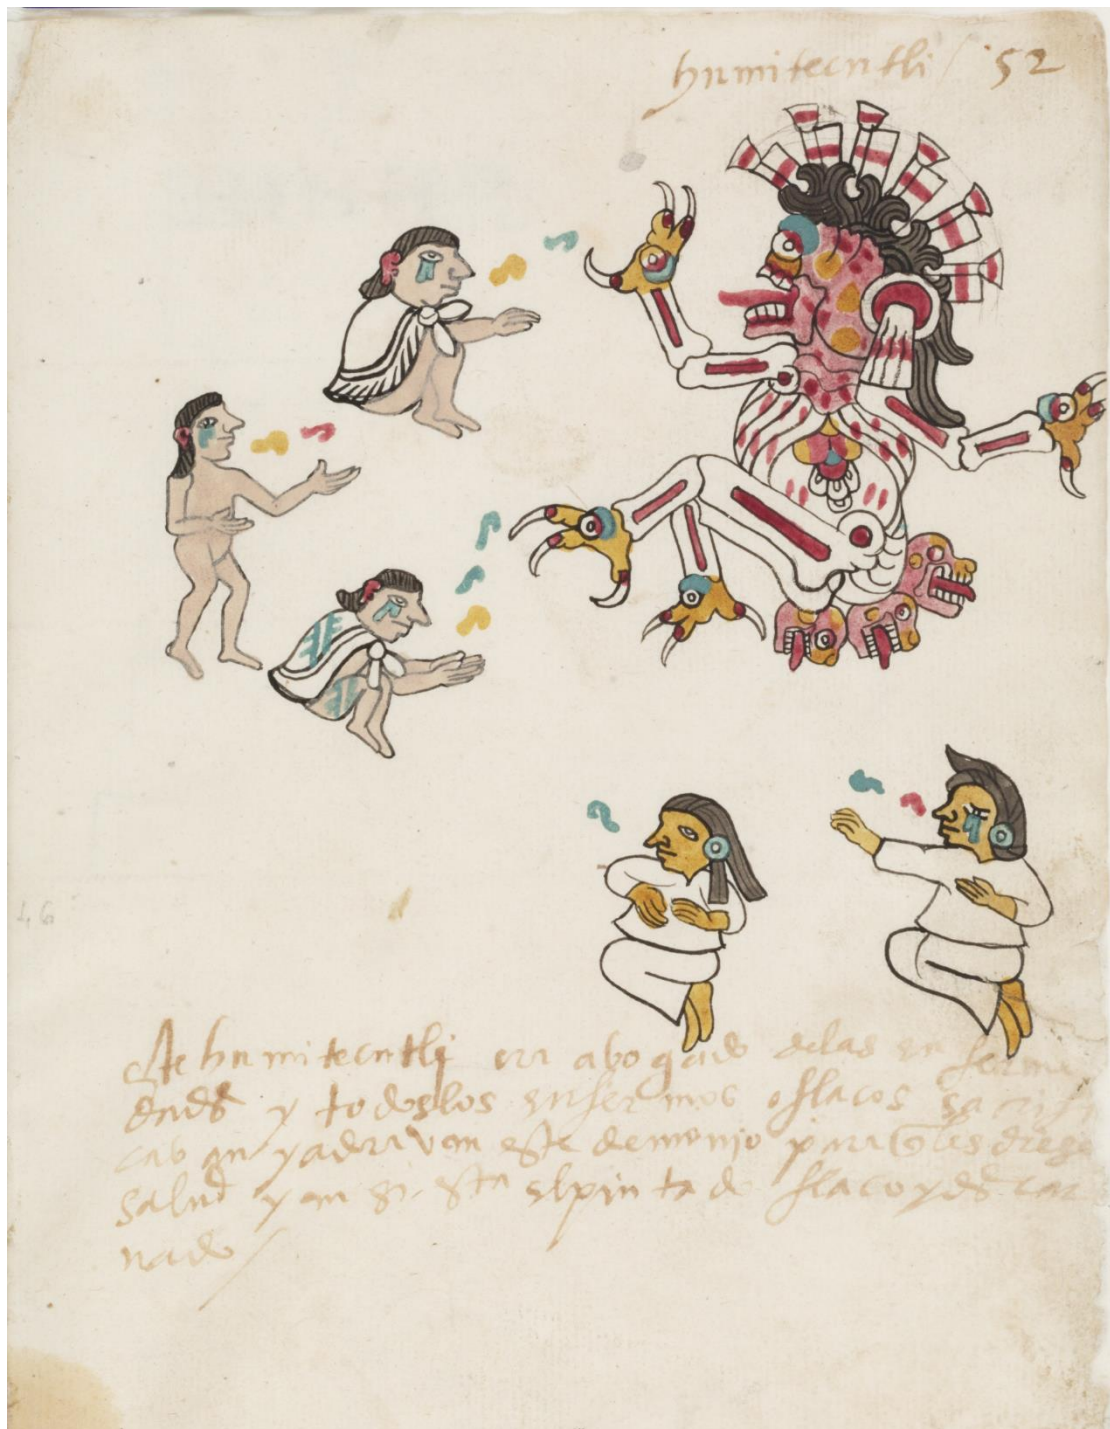 humitecutli / 52
este humitecutli era abogado delas enferme
dades y todos los enfermos o flacos sacrifi
caban y adoravan este demonio para q̃ les diese
salud y an si esta el pintado flaco y des car
nado /
46